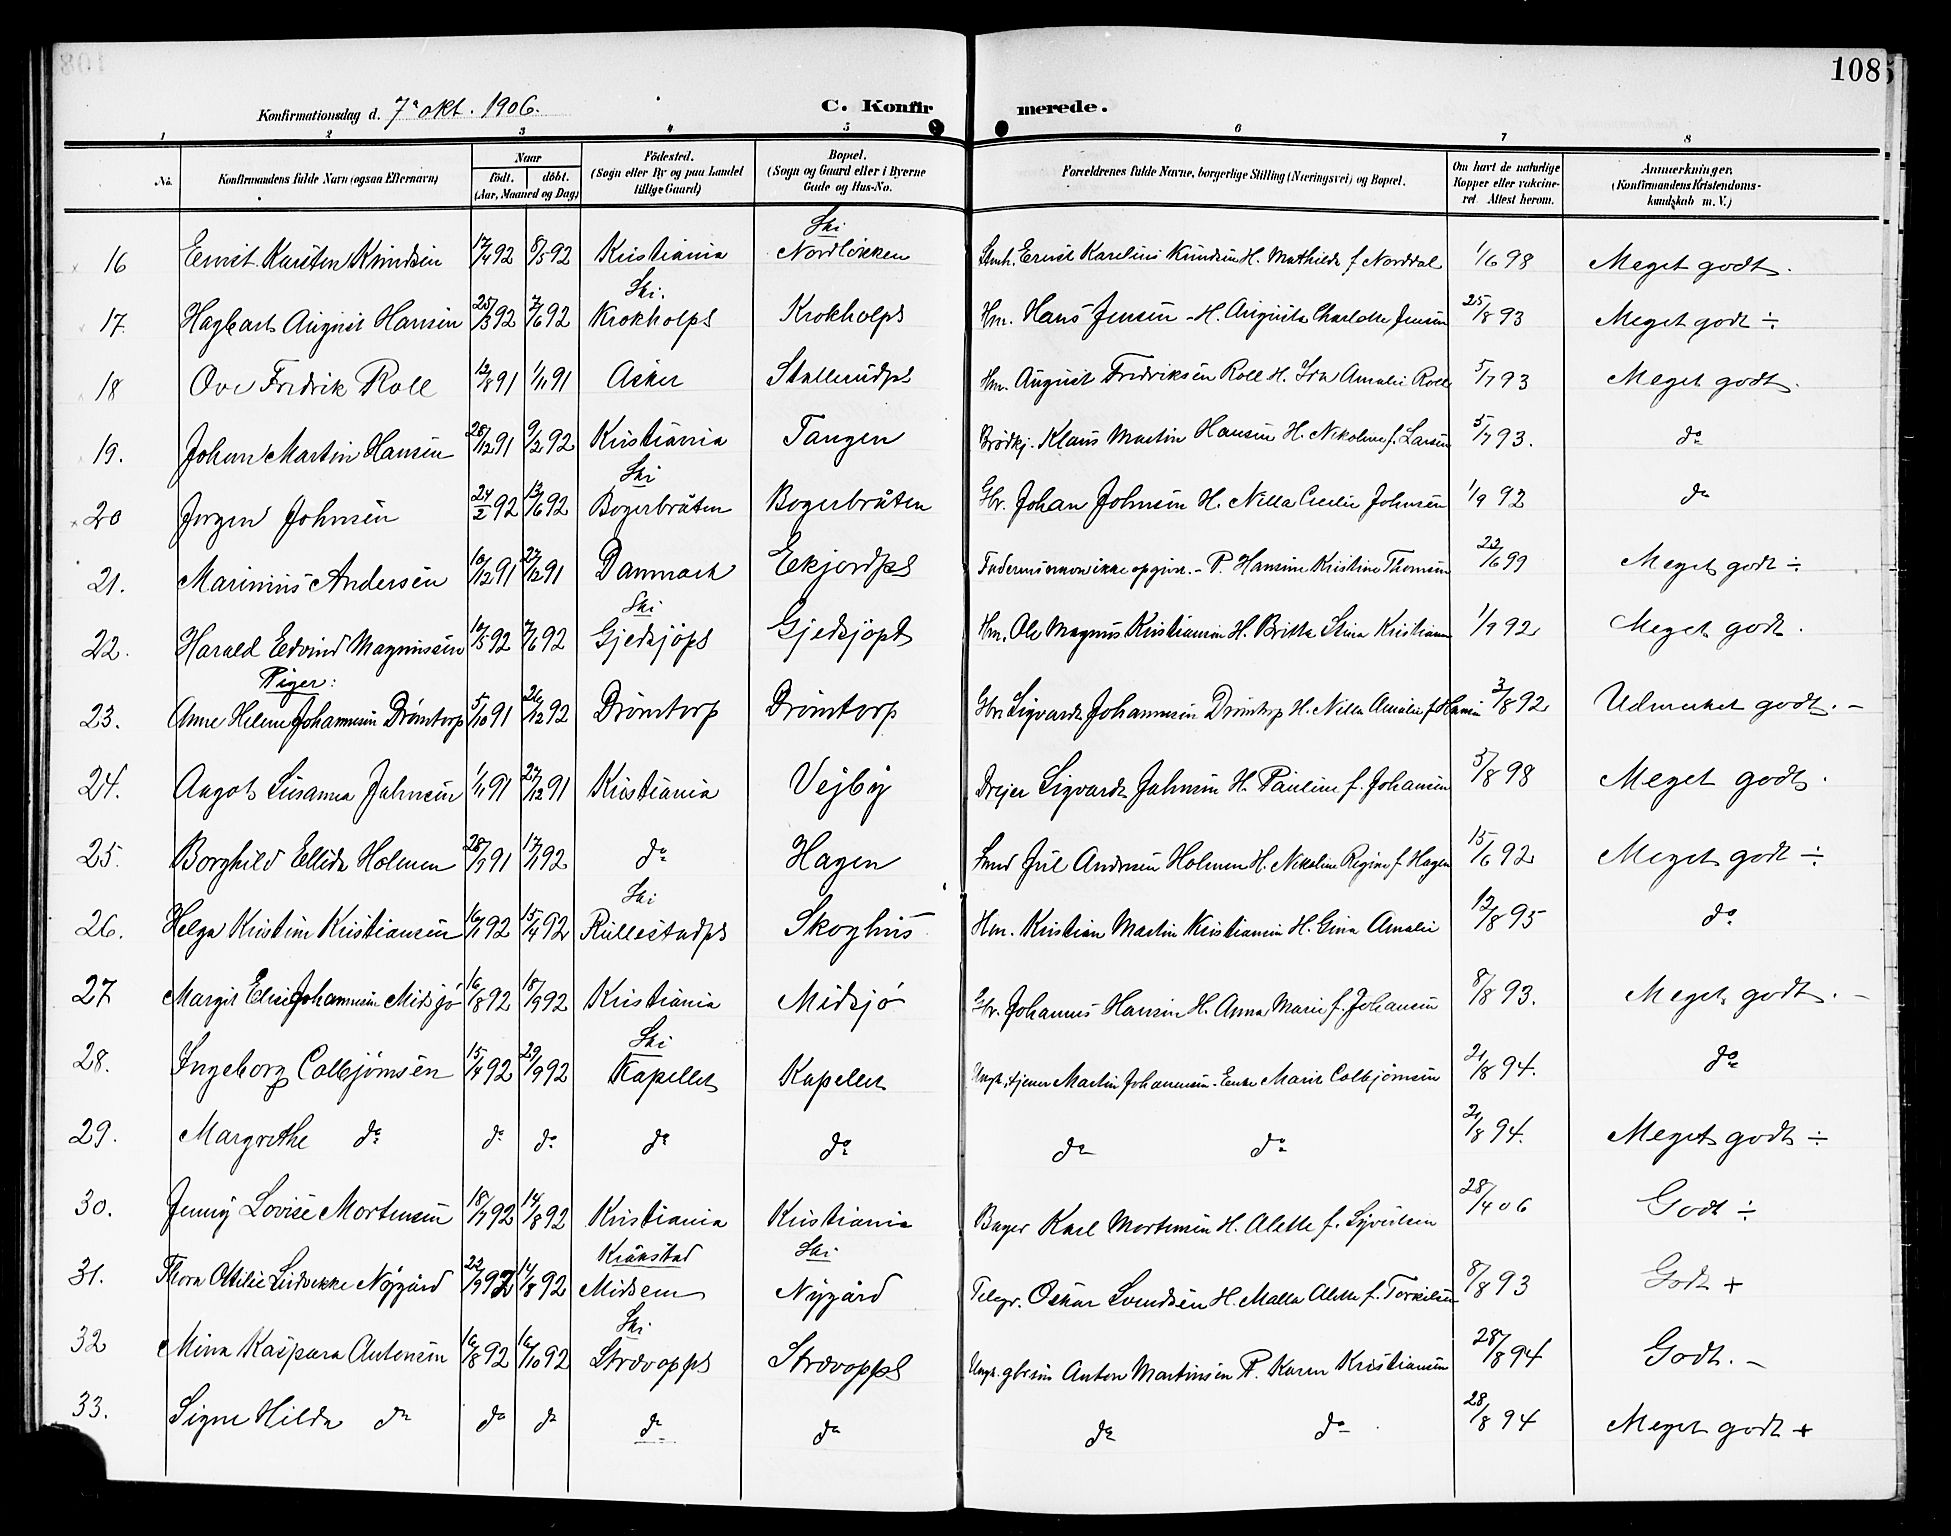 108
Konfirmationsdag d. 7de okt. 1906.
C. Konfirmerede.
1 2 3 4 5 6 7 8
No. Konfirmandens fulde Navn (ogsaa Efternavn) Naar födt. döbt. (Aar, Maaned og Dag) Födested. (Sogn eller By og paa Landet tillige Gaard) Bopæl. (Sogn og Gaard eller i Byerne Gade og Hus-No. Forældrenes fulde Navne, borgerlige Stilling (Næringsvei) og Bopæl. Om havt de naturlige Kopper eller vakcineret. Attest herom. Anmerkninger. (Konfirmandens Kristendomskundskab m. V.)
Ski
16 Ernst Karsten Knudsen 17/4 92 8/5 92 Kristiania Nordløkken Ernst Karelius Knudsen H. Mathilde f. Norddal 1/6 98 Meget godt.
Ski.
17. Hagbart August Hansen 25/3 92 7/6 92 Krokholps Krokholps Hm. Hans Jensen - H. Augusta Charlotte Jensen 25/8 93 Meget godt ÷
18 Ove Fredrik Roll 12/8 91 1/11 91 Asker Stallerudps Hm. August Fredriksen Roll H. Amalie Roll 5/7 93 Meget godt.
19. Johan Martin Hansen 28/12 91 9/2 92 Kristiania Tangen Brödkj. Klaus Martin Hansen H. Nikoline f. Larsen 5/7 93. do
Ski
20 Jørgen Johnsen 24/2 92 12/6 92 Bogerbråten Bogerbråten Gbr. Johan Johnsen H. Nilla Cecilie Johnsen 1/9 92 do
21. Marinius Andersen 10/12 91 27/12 91 Danmark Ekjordps Faderens navn ikke opgivet. - P. Hansine Kristine Thomsen 22/6 99 Meget godt ÷
Ski
22. Harald Edvind Magnussen 10/5 92 7/6 92 Gjedsjøps Gjedsjøps Hm. Ole Magnus Kristiansen H. Britta Stina Kristiansen 1/9 92 Meget godt.
Piger:
23. Anne Helene Johannesen Drømtorp 5/10 91 26/12 92 Drømtorp Drømtorp Gbr. Sigvardt Johannesen Drømtorp H. Nilla Amalie f. Hansen 3/8 92 Udmerket godt. -
24. Aagot Susanna Jahnsen 1/11 91 27/12 91 Kristiania Vejby Drejer Sigvardt Jahnsen H. Pauline f. Johansen 5/8 98 Meget godt.
25. Borghild Ellida Holmen 28/7 91 17/1 92 do Hagen Smed Jul Andersen Holmen H. Nikoline Regine f. Hagen 15/6 92 Meget godt ÷
Ski
26. Helga Kristine Kristiansen 16/1 92 15/4 92 Rullestadps Skoghus Hm. Kristian Martin Kristiansen H. Gina Amalie 12/8 95 do
27 Margit Elise Johannesen Midsjø 16/8 92 18/9 92 Kristiania Midsjø Gbr. Johannes Hansen H. Anna Marie f. Johansen 8/8 93. Meget godt. -
Ski
28. Ingeborg Colbjørnsen 15/4 92 29/9 92 Kapellet Kapellet Ungk. tjener Martin Johannesen - Enke Marit Colbjørnsen 21/8 94. do
29. Margrethe do do do do do do do 21/8 94. Meget godt ÷
30. Jenny Lovise Mortensen 18/7 92 14/8 92 Kristiania Kristiania Bager Karl Mortensen H. Alette f. Syversen 28/4 06 Godt ÷
Kråkstad Ski
31. Thora Otilie Ludvikke Nygård 22/9 92 14/8 92 Midsem Nygård Telegr. Oskar Svendsen H. Malla Alette f. Torkilsen 8/8 93 Godt +
Ski
32 Mina Kaspara Antonsen 16/8 92 16/10 92 Strøvopps Strøvopps Ungk. gbrsøn Anton Martinsen P. Karen Kristiansen 28/8 94 Godt. -
33. Signe Hilda do do do do do do do 28/8 94 Meget godt +